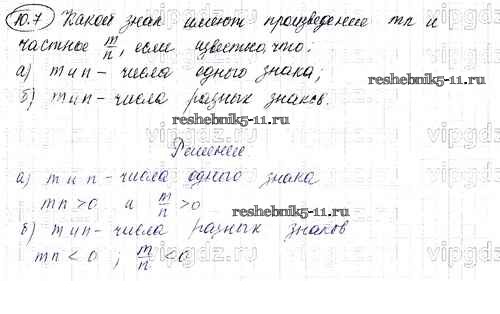 10.7 Какой знак имеют произведение mn и
частное m/n, если известно, что:
а) m и n - числа одного знака;
reshebnik5-11.ru
б) m и n - числа разных знаков.
reshebnik5-11.ru
Решение
а) m и n - числа одного знака
mn > 0 и m/n > 0
reshebnik5-11.ru
б) m и n - числа разных знаков
mn < 0 ; m/n < 0
vipgdz.com